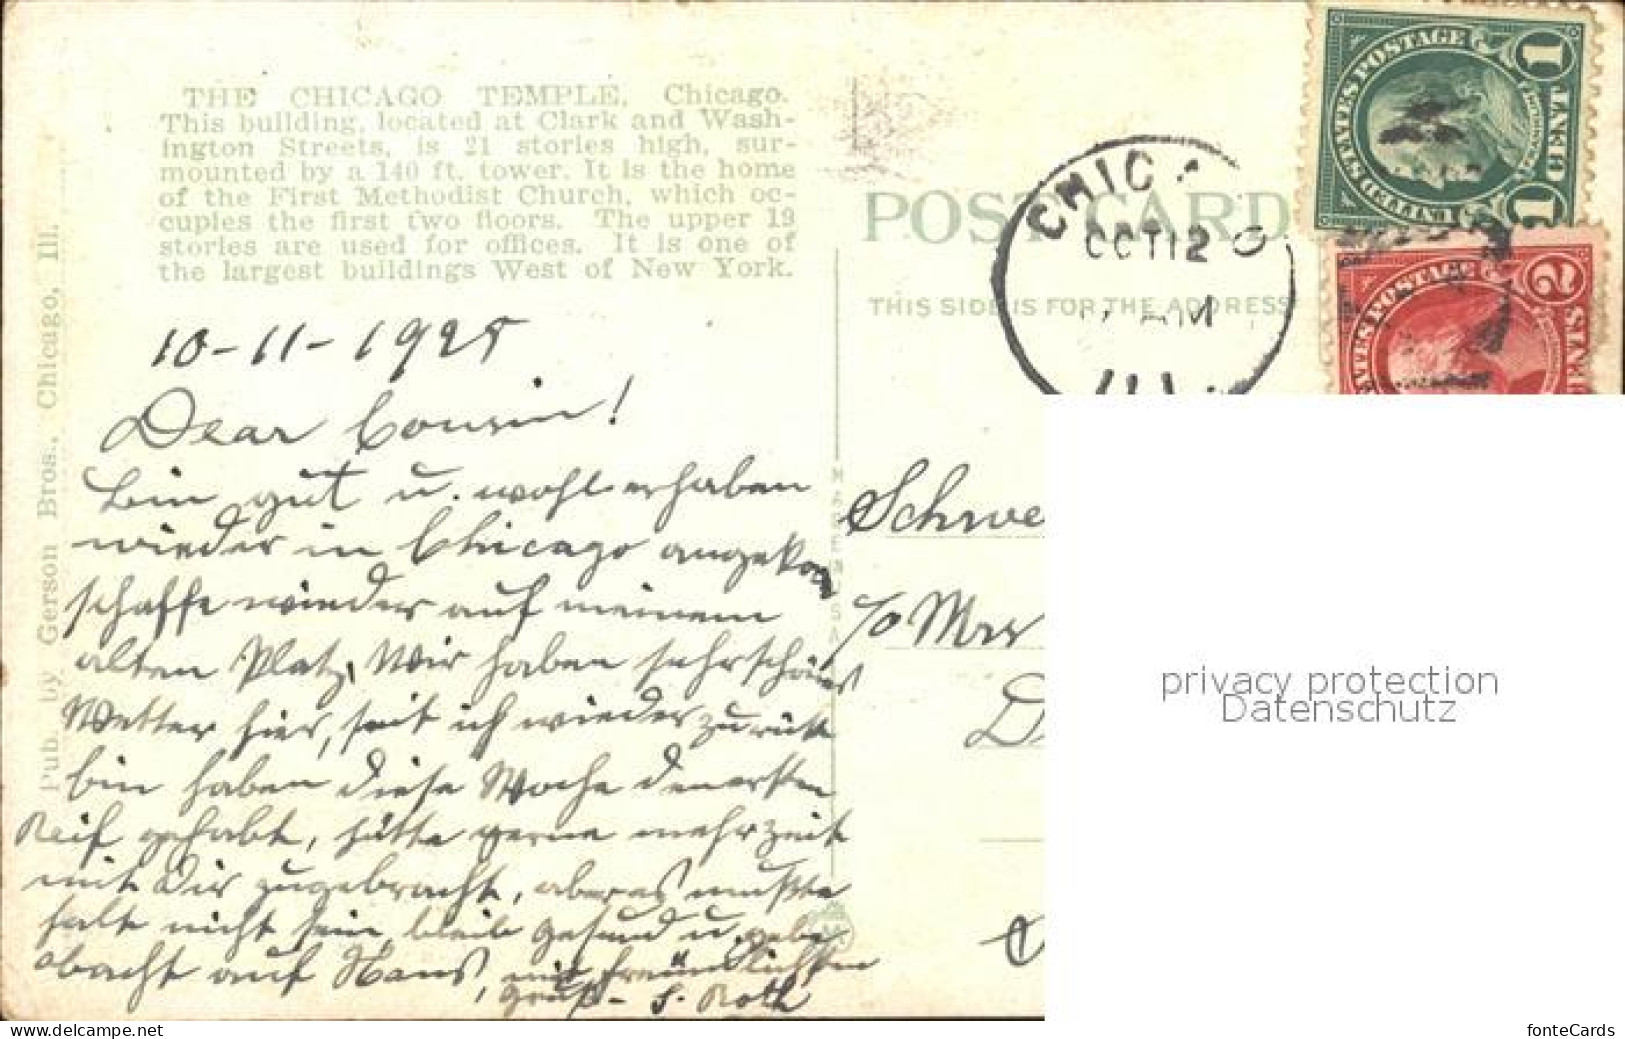 THE CHICAGO TEMPLE, Chicago.
This building, located at Clark and Wash-
ington Streets, is 21 stories high, sur-
mounted by a 140 ft. tower. It is the home
of the First Methodist Church, which oc-
cupies the first two floors. The upper 19
stories are used for offices. It is one of
the largest buildings West of New York.
Pub. by Gerson Bros., Chicago, Ill.
POST CARD
THIS SIDE IS FOR THE ADDRESS
CHICAGO
OCT 12
AM
ILL.
UNITED STATES POSTAGE
1 1
2
10-11-1925
Dear Cousin!
bin gut u. wohlerhaben
wieder in Chicago angekom
schaffe wieder auf meinem
alten Platz, Wir haben sehr schönes
Wetter hier, seit ich wieder zurück
bin haben diese Woche den ersten
Reif gehabt, hätte gerne mehr zeit
mit Dir zugebracht, aber es mußte
halt nicht sein, bleib gesund u. gebe
obacht auf Hans, mit freundlichsten
Gruß - S. Roth
Schwe
c/o Mrs
privacy protection
Datenschutz
www.delcampe.net
fonteCards